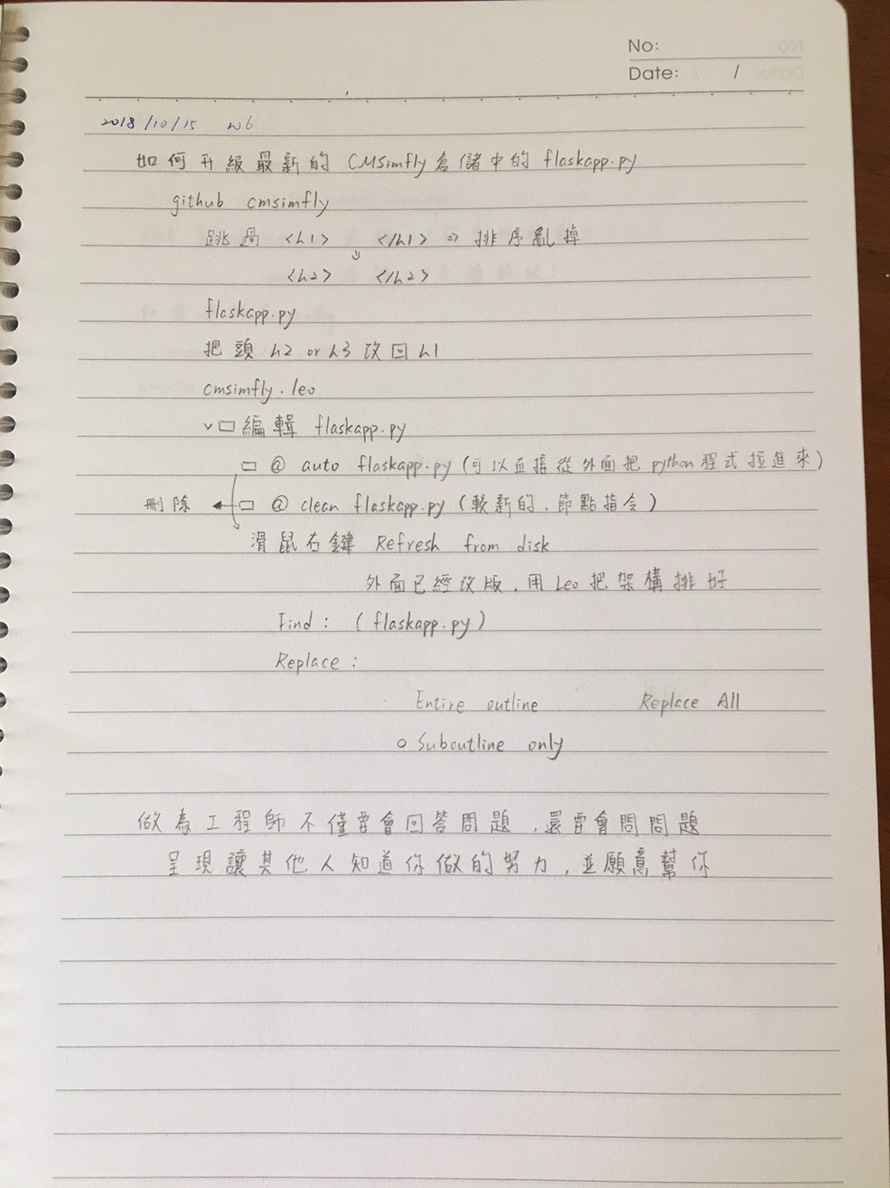 No:
Date: /
2018/10/15 w6
如何升級最新的 CMSimfly倉儲中的 flaskapp.py
github cmsimfly
跳過 <h1> </h1> ⇒ 排序亂掉
<h2> </h2>
flaskapp.py
把頭 h2 or h3 改回 h1
cmsimfly.leo
v□編輯 flaskapp.py
□ @ auto flaskapp.py (可以直接從外面把 python 程式拉進來)
刪除 ← □ @ clean flaskapp.py (較新的、節點指令)
滑鼠右鍵 Refresh from disk
外面已經改版,用 Leo 把架構排好
Find: (flaskapp.py)
Replace:
Entire outline Replace All
○ Suboutline only
做為工程師不僅要會回答問題,還要會問問題
呈現讓其他人知道你做的努力,並願意幫你